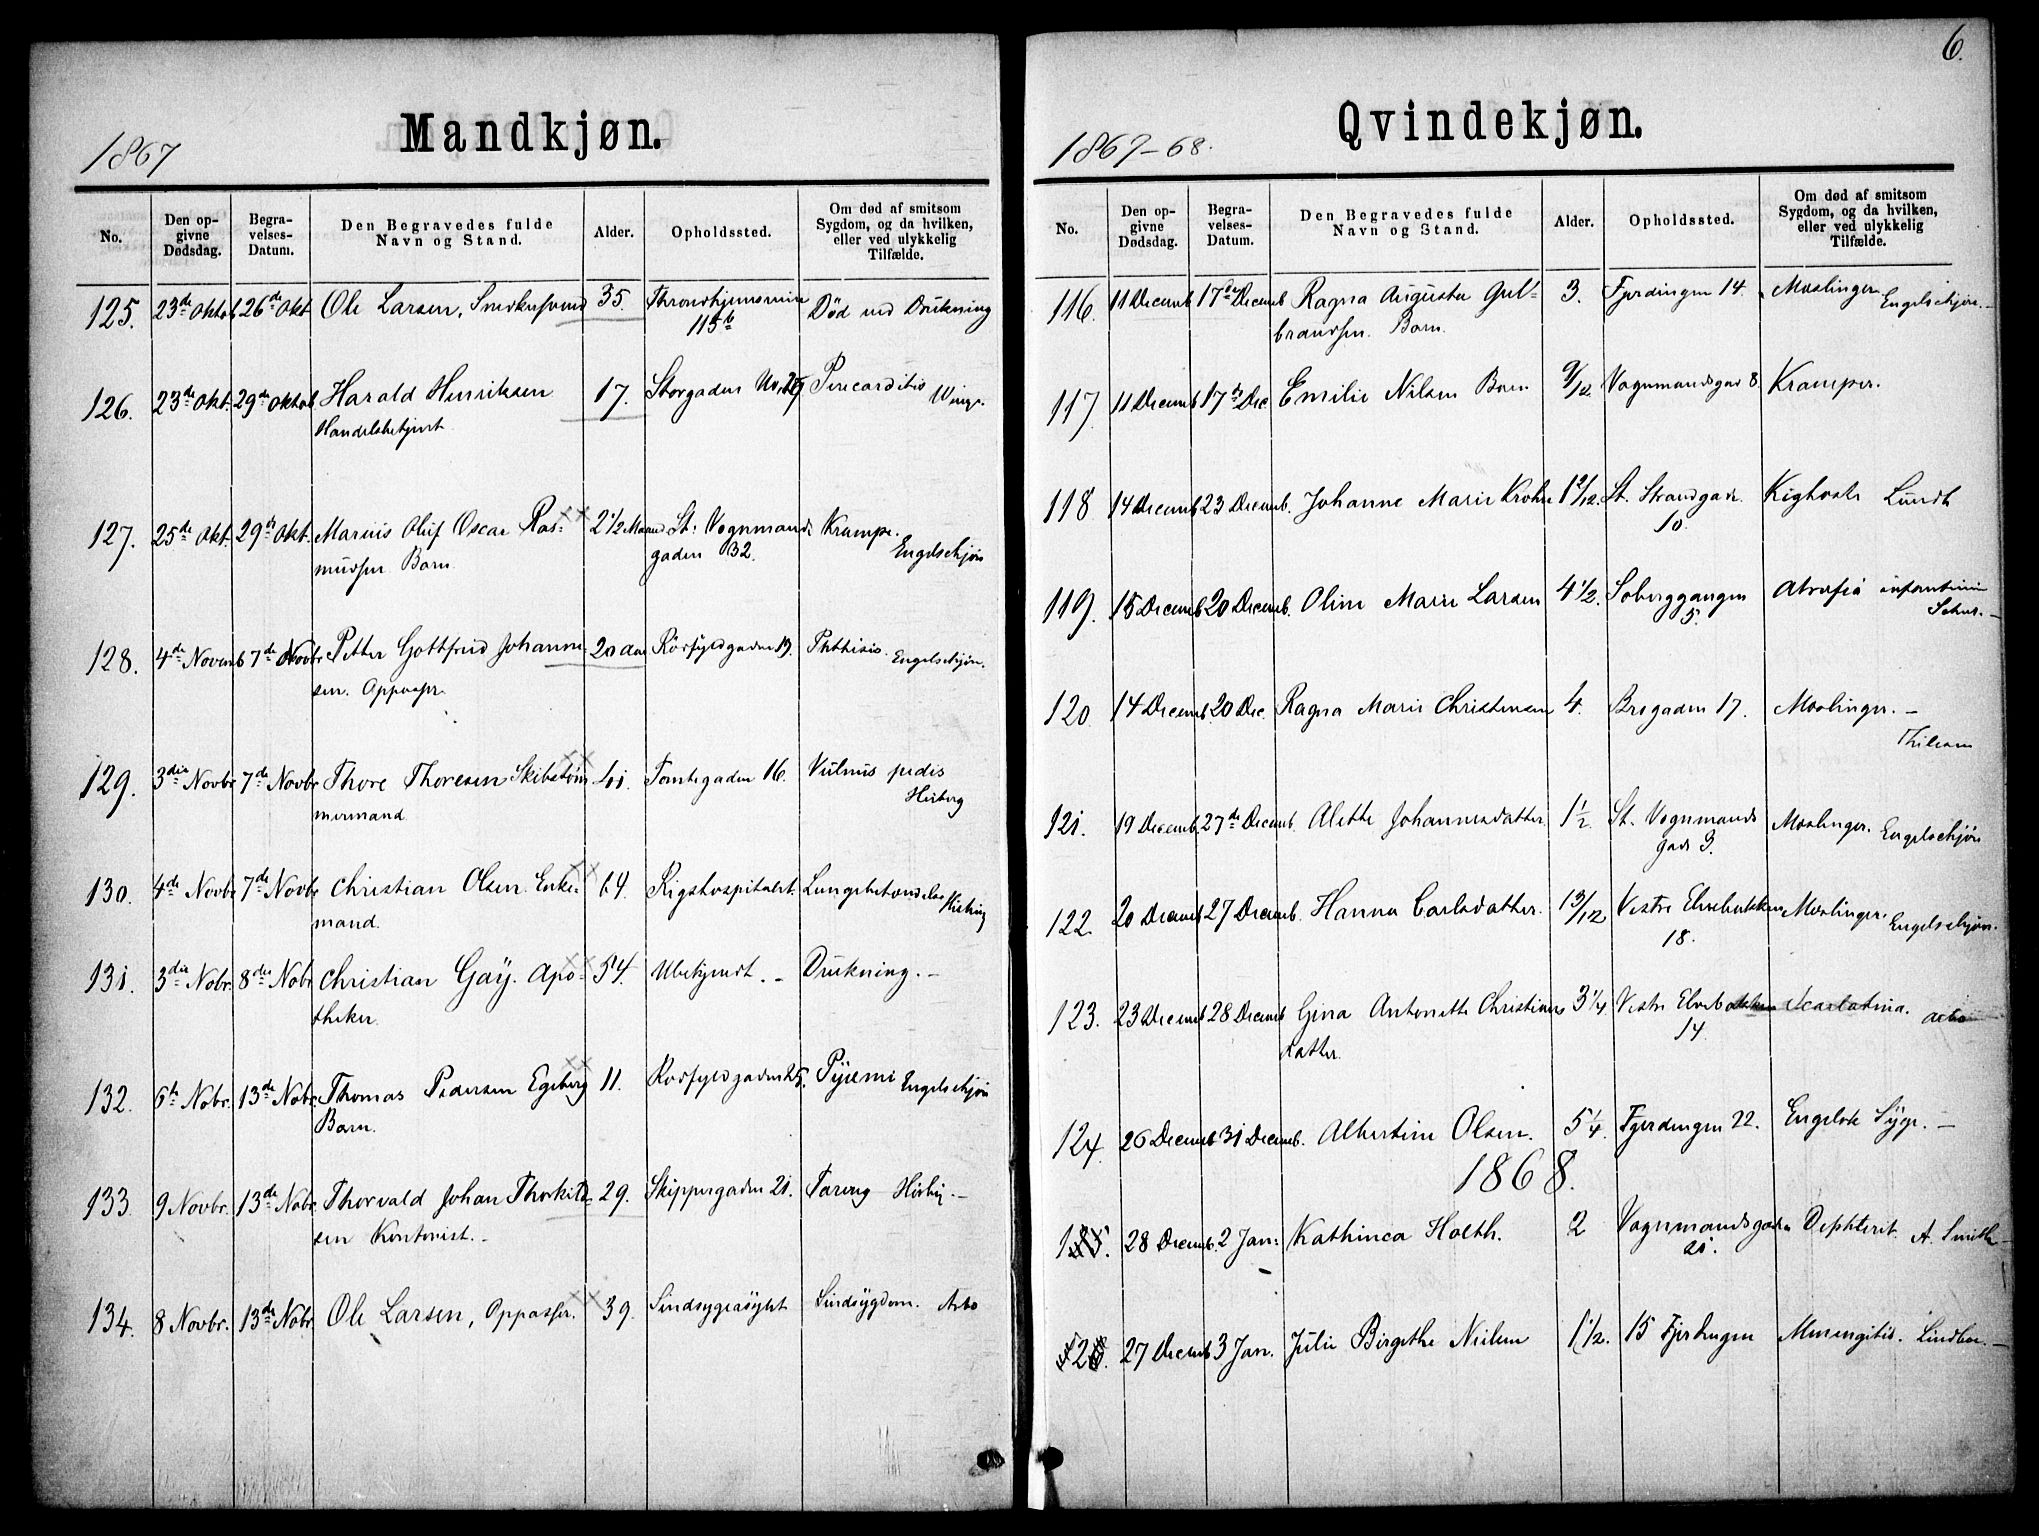 6.
Mandkjøn.
1867
No. Den opgivne Dødsdag. Begravelses-Datum. Den Begravedes fulde Navn og Stand. Alder. Opholdssted. Om død af smitsom Sygdom, og da hvilken, eller ved ulykkelig Tilfælde.
125. 23de Oktob 26de Okt Ole Larsen, 35. Throndhjemsveien Død ved Drukning
115b
126. 23de Okt. 29de Oktob Harald Henriksen 17. Storgaden No. Pericarditis Winge.
Handelsbetjent
127. 25de Okt. 29de Okt. Marius Oluf Oscar Ras= 2 1/2 Maaned St. Vognmands Krampe.
mussen Barn gaden 32. Engelschjøn
128. 4de Novemb 7de Novbr Petter Gottfried Johanne= 20 Aar Rørfyldgaden 19. Phthisis. Engelschjøn.
sen. Oppasser.
129. 3die Novbr 7de Novbr Thore Thoresen Skibstøm 41. Tomtegaden 16. Vulnus pedis
mermand Heiberg
130. 4de Novbr 7de Novbr Christian Olsen Enke= 64 Rigshospitalet. Lungebetændelse
mand.
131. 3die Nobr. 8de Nobr Christian Gay. Apo= 54. Ubekjendt. – Drukning. –
theker.
132. 6te Nobr. 13de Nobr. Thomas Pedersen Egeberg 11. Rørfyldgaden 25. Pyæmi Engelschjøn
Barn.
133. 9 Novbr. 13de Nobr. Thorvald Johan Thorkild= 29. Skippergaden 21. Tæring
sen Kontorist. –
134. 8 Novbr. 13de Nobr. Ole Larsen, Oppasser. 39. Sindsygeasylet Sindsygdom. Arbo
Qvindekjøn.
1867–68.
No. Den opgivne Dødsdag. Begravelses-Datum. Den Begravedes fulde Navn og Stand. Alder. Opholdssted. Om død af smitsom Sygdom, og da hvilken, eller ved ulykkelig Tilfælde.
116. 11 Decemb 17de Decemb Ragna Augusta Gul= 3. Fjerdingen 14. Mæslinger Engelschjøn. –
brandsen. Barn.
117. 11 Decemb 17de Dec Emilie Nilsen Barn 9/12. Vognmandsgad 8. Kramper.
118 14 Decemb 23 Decemb. Johanne Marie Krohn St. Strandgade Kighoste Lundt
10.
119. 15 Decemb 20 Decemb. Oline Marie Larsen 4 1/2. Soberggangen Atrofia
5.
120 14 Decemb. 20 Dec. Ragna Marie Christensen 4. Brogaden 17. Mæslinger. –
121. 19 Decemb. 27de Decemb. Alette Johannesdatter. 1 1/2. St. Vognmands Mæslinger. Engelschjøn
gade 3.
122. 20 Decemb 27 Decemb. Hanna Carlsdatter. 13/12 Vestre Elvebakken Mæslinger. Engelschjøn.
18.
123. 23 Decemb 28 Decemb Gina Antonette Christians 3 1/4 Vestre Elvebakken Scarlatina. Arbo
datter. 14.
124. 26 Decemb 31 Decemb. Albertine Olsen. 5 1/4. Fjerdingen 22. Engelsk Syge. –
1868.
1 28 Decemb. 2 Jan: Kathinca Holth. 2 Vognmandsgaden Dephterit. A. Smith
21.
2 27 Decemb 3 Jan. Julie Birgithe Nielsen 1 1/2. 15 Fjerdingen Meningitis.